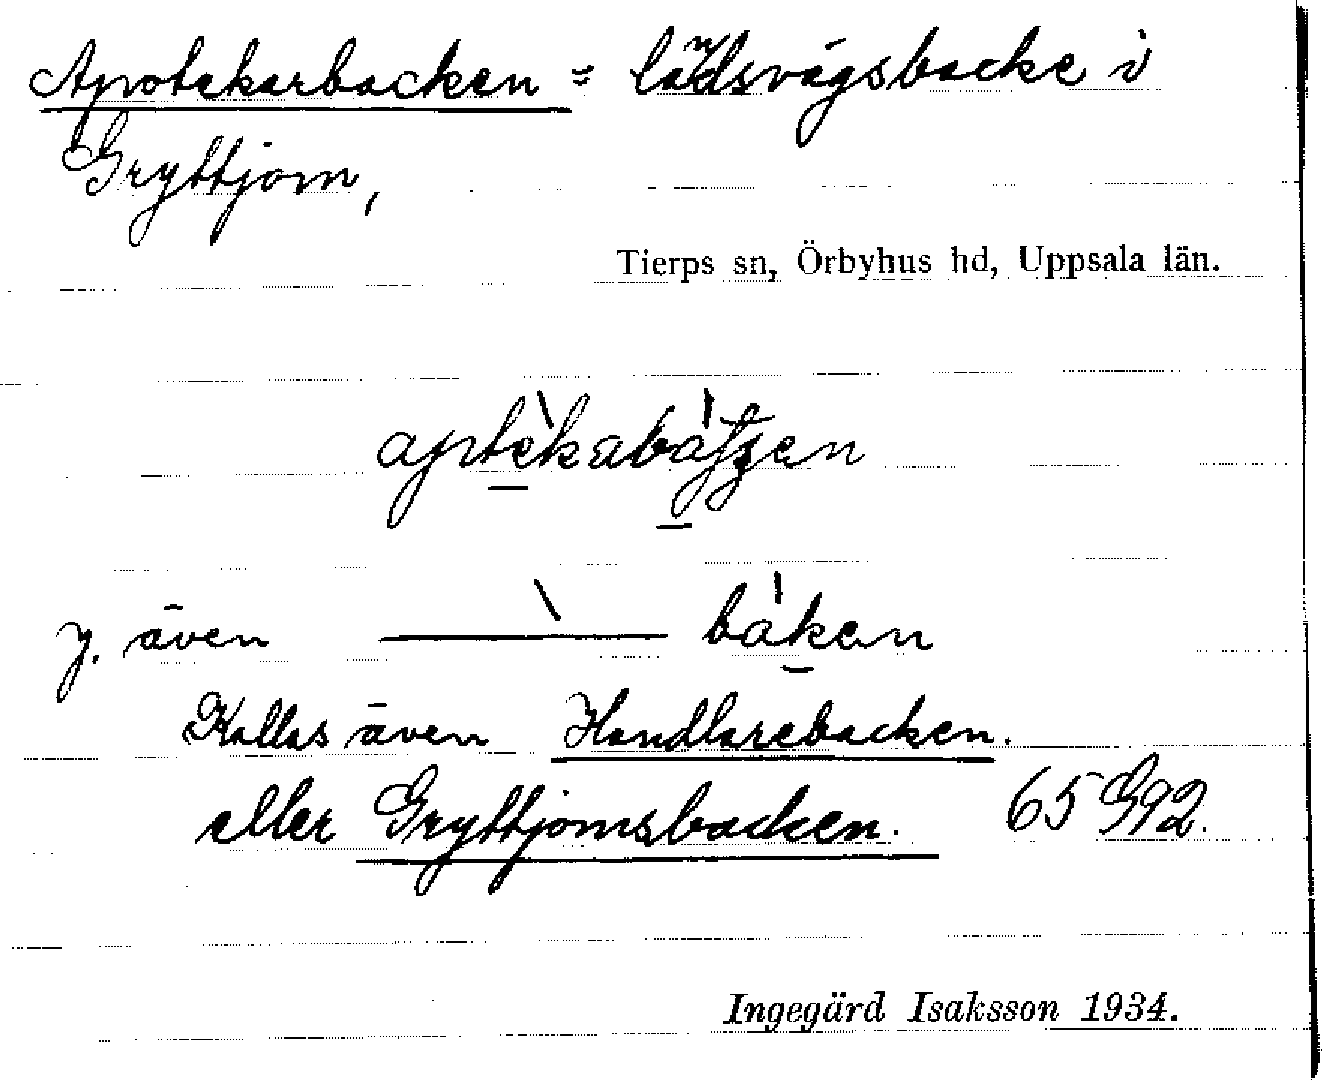 Apotekarbacken = landsvägsbacke i
Gryttjom,
Tierps sn, Örbyhus hd, Uppsala län.
y. även ——— båken
Kallas även Handlarebacken.
eller Gryttjomsbacken. 65 G92.
Ingegärd Isaksson 1934.